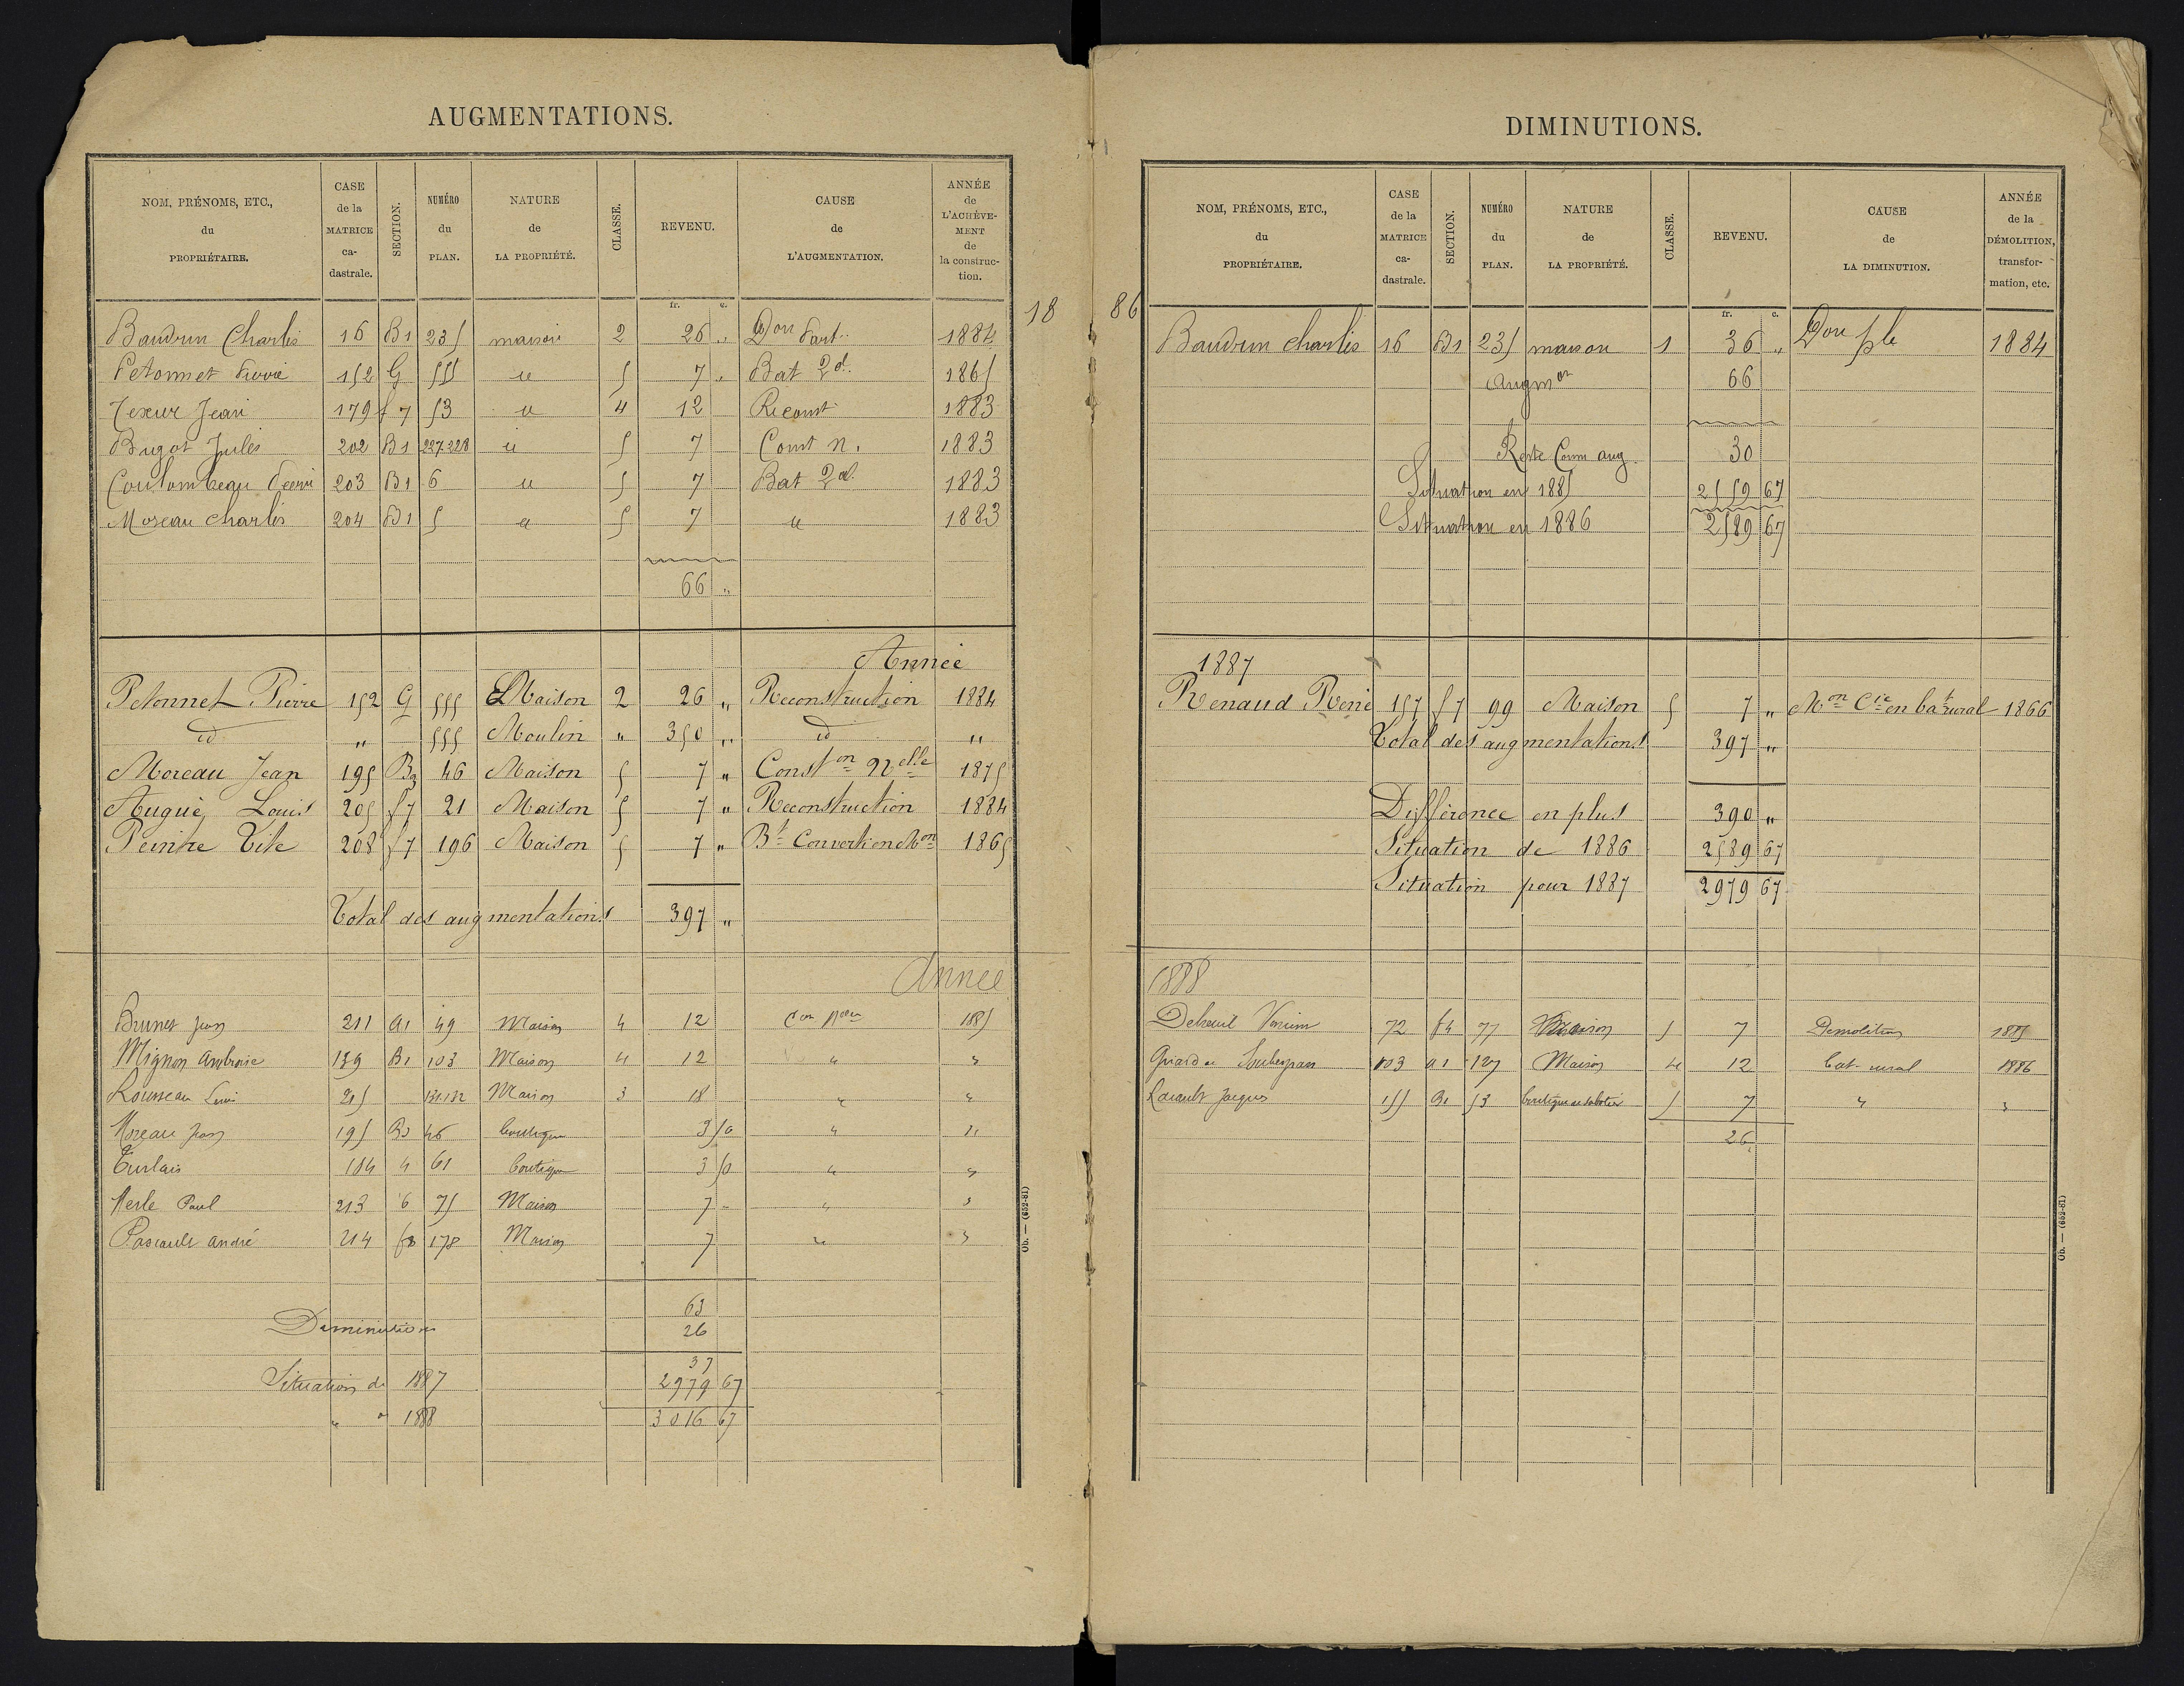 AUGMENTATIONS.
NOM, PRÉNOMS, ETC., du PROPRIÉTAIRE. | CASE de la MATRICE ca-dastrale. | SECTION. | NUMÉRO du PLAN. | NATURE de LA PROPRIÉTÉ. | CLASSE. | REVENU. | CAUSE de L'AUGMENTATION. | ANNÉE de L'ACHÈVE-MENT de la construc-tion.
fr. c.
18
Baudrun Charles 16 B1 235 maison 2 26 „ Don 1884
Petonnet Pierre 152 G 555 u 5 7 „ Bat 2d. 1865
Texier Jean 179 f 7 53 u 4 12 Reconst 1883
Bugot Jules 202 B1 227.228 u 5 7 Const n. 1883
Coulombeau 203 B1 6 u 5 7 Bat 2d. 1883
Moreau Charles 204 B1 5 u 5 7 u 1883
66 „
Année
Petonnet Pierre 152 G 555 Maison 2 26 „ Reconstruction 1884
id „ 555 Moulin „ 350 „ id „
Moreau Jean 195 B3 46 Maison 5 7 „ Const on Nelle 1875
Augué Louis 205 f7 21 Maison 5 7 „ Reconstruction 1884
Peintre Tite 208 f7 196 Maison 5 7 „ Bt Convertien Mon 1865
Total des augmentations 397 „
Année
Brunet Jean 211 a1 49 Maison 4 12 Con Nelle 1885
Mignon Ambroise 139 B1 103 Maison 4 12 „ „
Rousseau 215 131.132 Maison 3 18 „ „
Moreau Jean 195 B3 46 boutique 3 50 „ „
Turlais 184 4 61 boutique 3 50 „ „
Merle Paul 213 6 75 Maison 7 - „ „
Pascault André 214 f8 178 Maison 7 „ „
63
Diminution 26
37
Situation de 1887 2979 67
„ „ 1888 3016 67
Ob. — (652-81)
DIMINUTIONS.
NOM, PRÉNOMS, ETC., du PROPRIÉTAIRE. | CASE de la MATRICE ca-dastrale. | SECTION. | NUMÉRO du PLAN. | NATURE de LA PROPRIÉTÉ. | CLASSE. | REVENU. | CAUSE de LA DIMINUTION. | ANNÉE de la DÉMOLITION, transfor-mation, etc.
fr. c.
86
Baudrun Charles 16 B1 235 maison 1 36 „ Don ple 1884
Augmon 66
Reste Comm aug. 30
Situation en 1885 2559 67
Situation en 1886 2589 67
1887
Renaud René 157 f7 99 Maison 5 7 „ Mon Cie en bat rural 1866
Total des augmentations 397 „
Différence en plus 390 „
Situation de 1886 2589 67
Situation pour 1887 2979 67
1888
72 f4 77 Maison 5 7 Demolition 1885
103 a1 127 Maison 4 12 bat- rural 1886
Jacques 155 B1 53 boutique de sabotier 5 7 „ „
26
Ob. — (652-81)